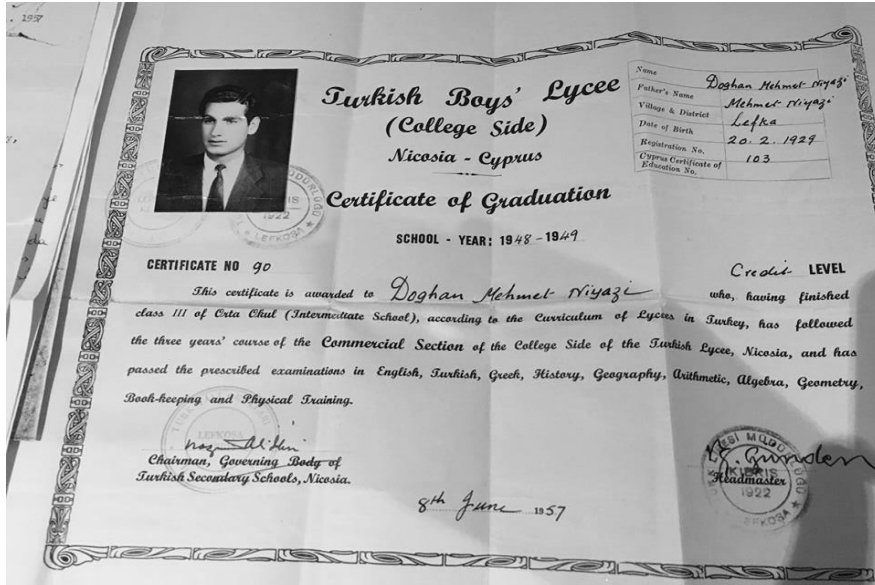 1957
Turkish Boys' Lycee
(College Side)
Nicosia - Cyprus
Certificate of Graduation
SCHOOL - YEAR: 1948-1949
Name Doghan Mehmet Niyazi
Father's Name Mehmet Niyazi
Village & District Lefka
Date of Birth 20. 2. 1929
Registration No. 103
Cyprus Certificate of
Education No.
KIBRIS
1922
LEFKOŞA
CERTIFICATE NO 90
Credit LEVEL
This certificate is awarded to Doghan Mehmet Niyazi who, having finished
class III of Orta Okul (Intermedtate School), according to the Curriculum of Lycees in Turkey, has followed
the three years' course of the Commercial Section of the College Side of the Turkish Lycee, Nicosia, and has
passed the prescribed examinations in English, Turkish, Greek, History, Geography, Arithmetic, Algebra, Geometry,
Book-keeping and Physical Training.
LEFKOŞA
Chairman, Governing Body of
Turkish Secondary Schools, Nicosia.
Headmaster
KIBRIS
1922
LEFKOŞA
8th June 1957